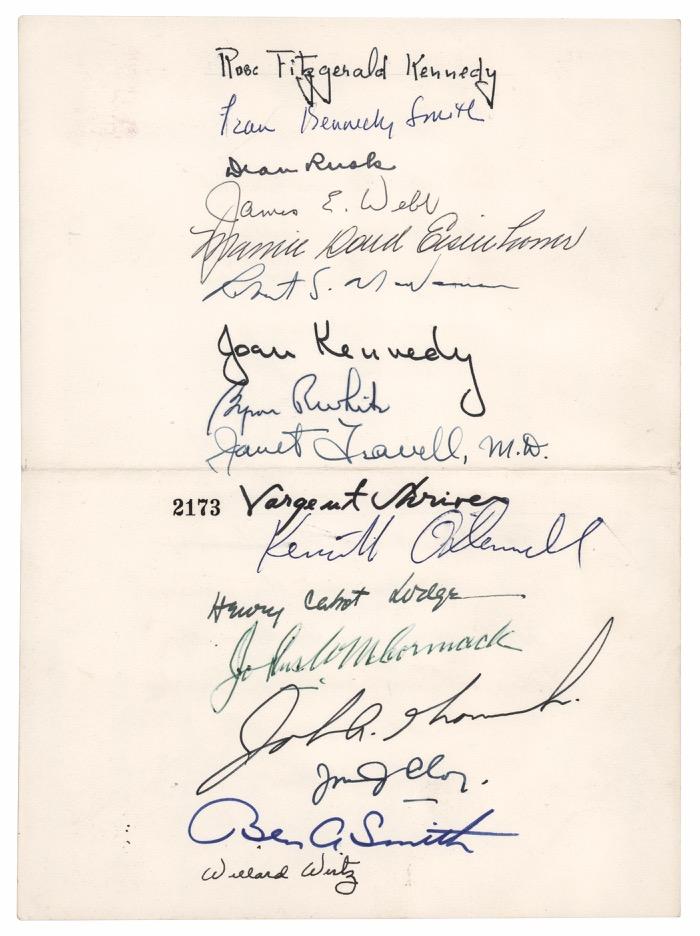 Rose Fitzgerald Kennedy
Jean Kennedy Smith
Dean Rusk
James E. Webb
Mamie Doud Eisenhower
Robert S. McNamara
Joan Kennedy
Byron R White
Janet Travell, M.D.
2173 Sargent Shriver
Kenneth O'Donnell
Henry Cabot Lodge
John W McCormack
John A.
John J McCloy.
Ben A Smith
Willard Wirtz